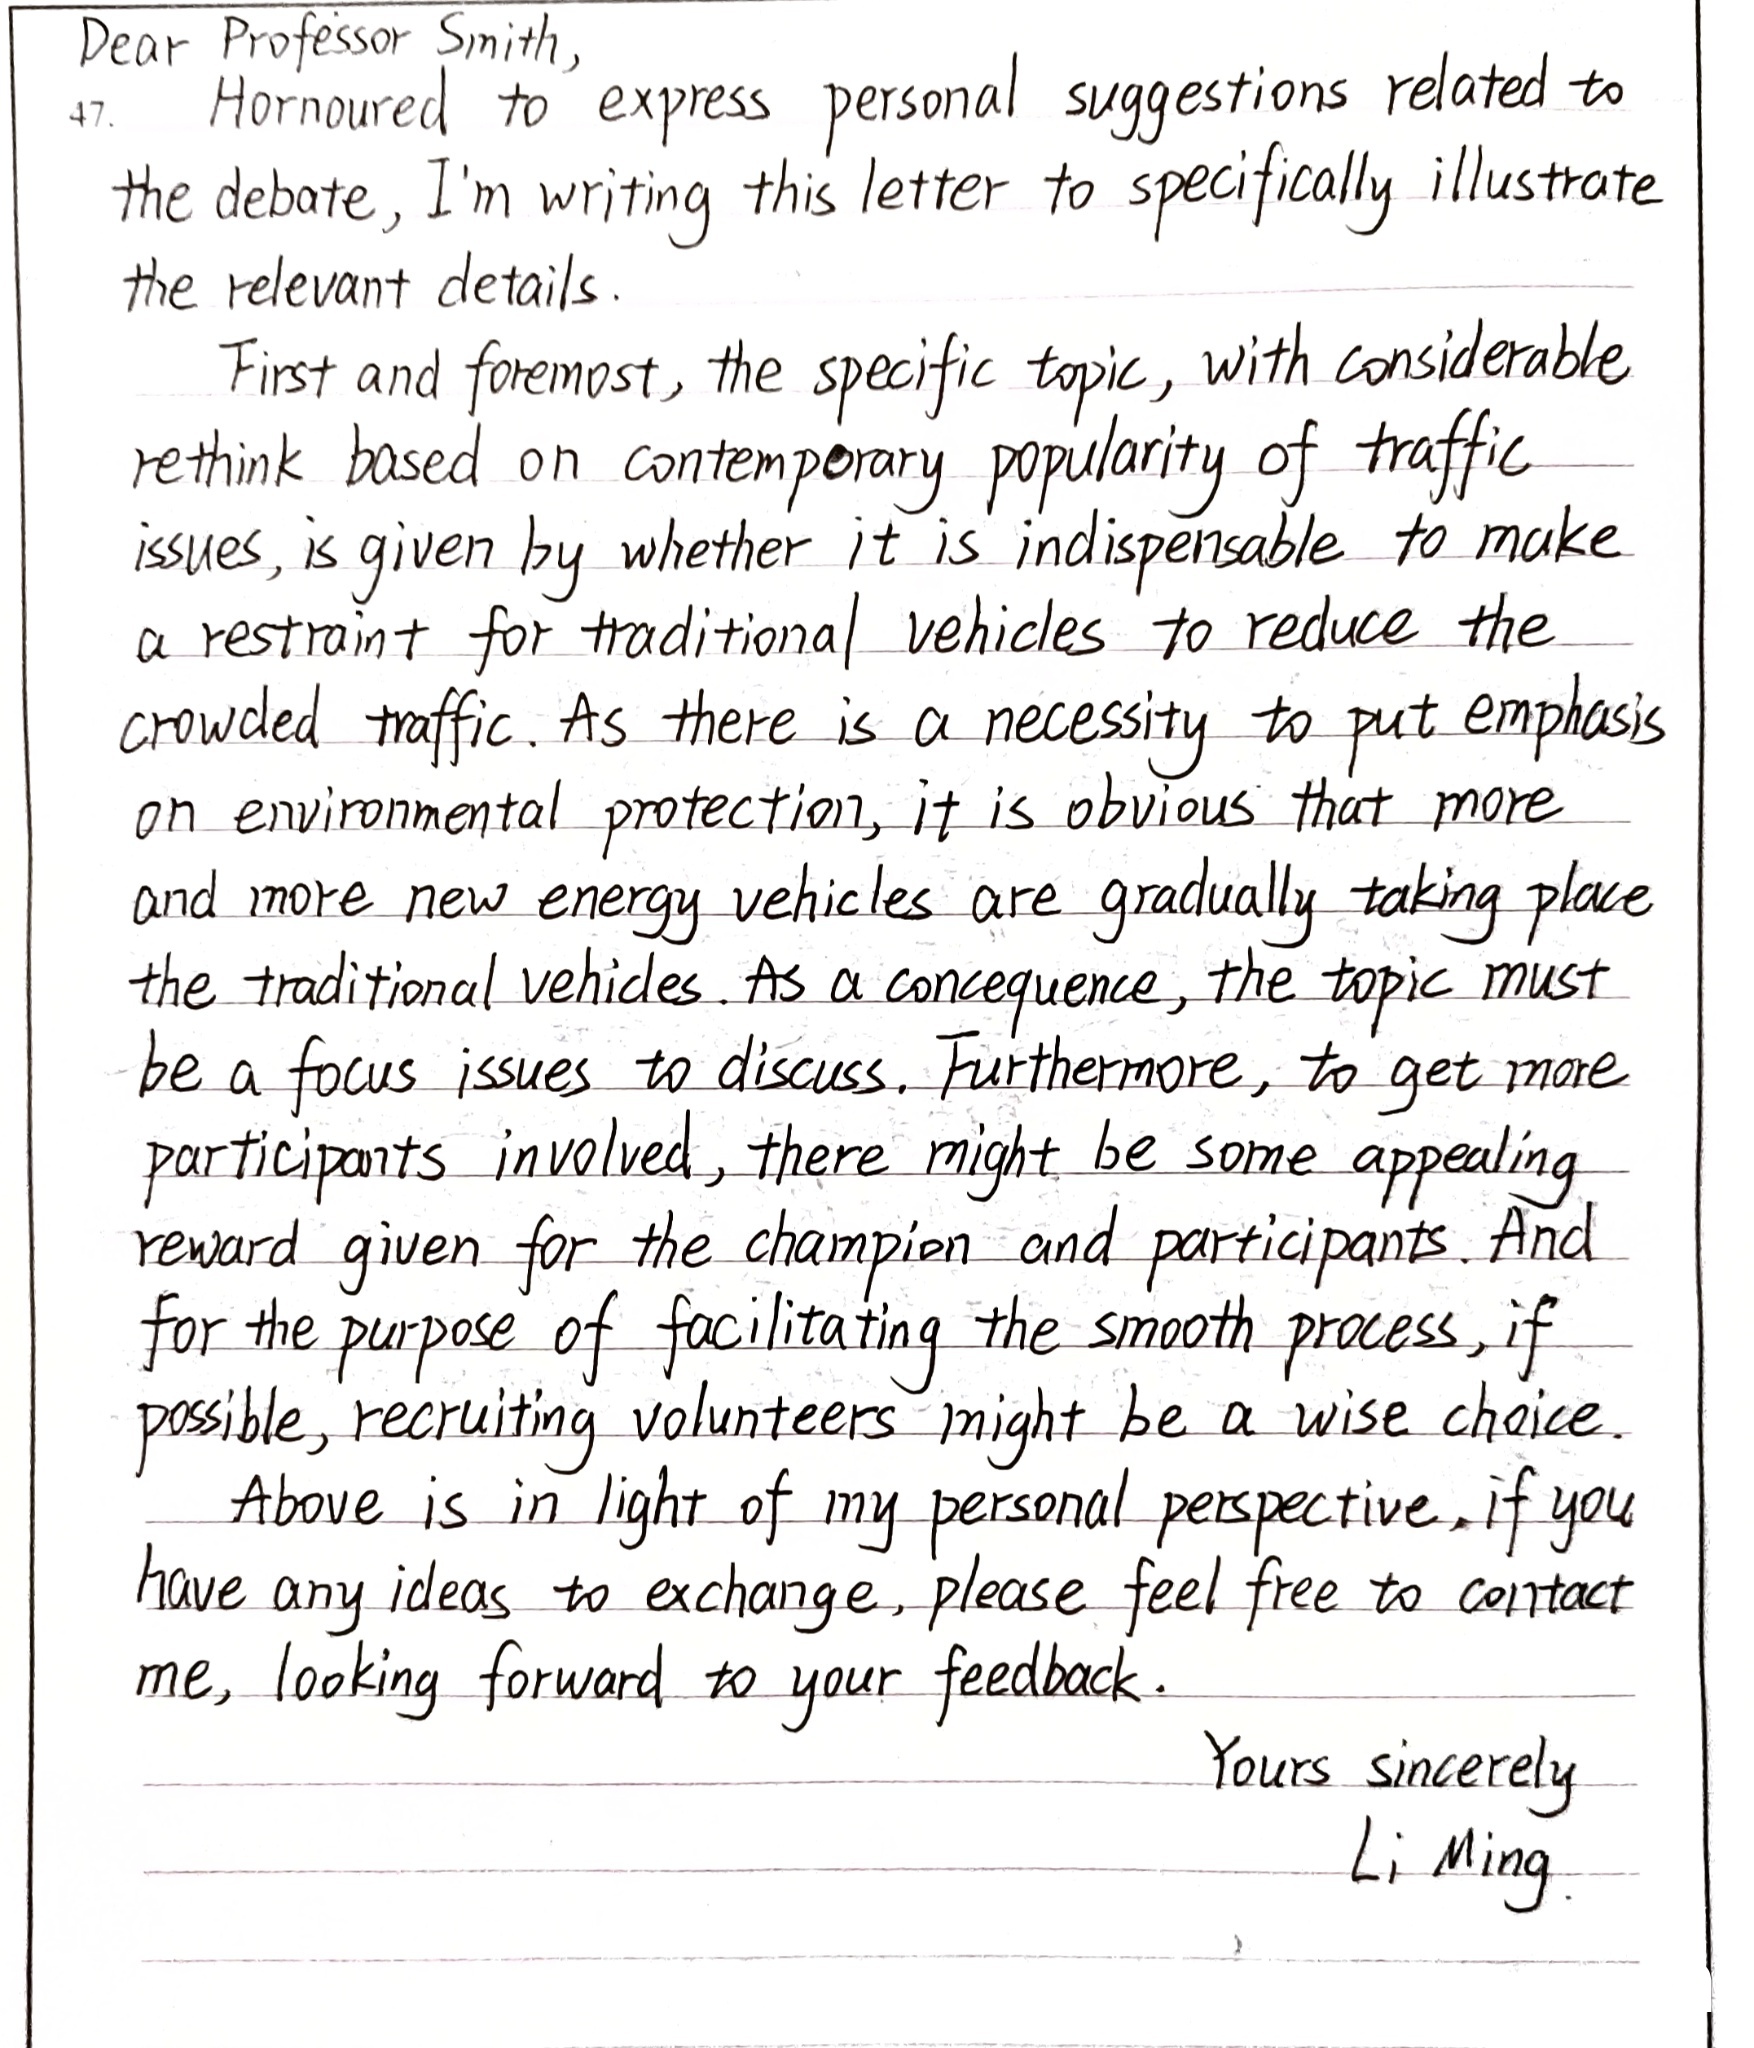 Dear Professor Smith,
47. Hornoured to express personal suggestions related to
the debate, I'm writing this letter to specifically illustrate
the relevant details.
First and foremost, the specific topic, with considerable
rethink based on contemporary popularity of traffic
issues, is given by whether it is indispensable to make
a restraint for traditional vehicles to reduce the
crowded traffic. As there is a necessity to put emphasis
on environmental protection, it is obvious that more
and more new energy vehicles are gradually taking place
the traditional vehicles. As a concequence, the topic must
be a focus issues to discuss. Furthermore, to get more
participants involved, there might be some appealing
reward given for the champion and participants. And
for the purpose of facilitating the smooth process, if
possible, recruiting volunteers might be a wise choice.
Above is in light of my personal perspective, if you
have any ideas to exchange, please feel free to contact
me, looking forward to your feedback.
Yours sincerely
Li Ming.